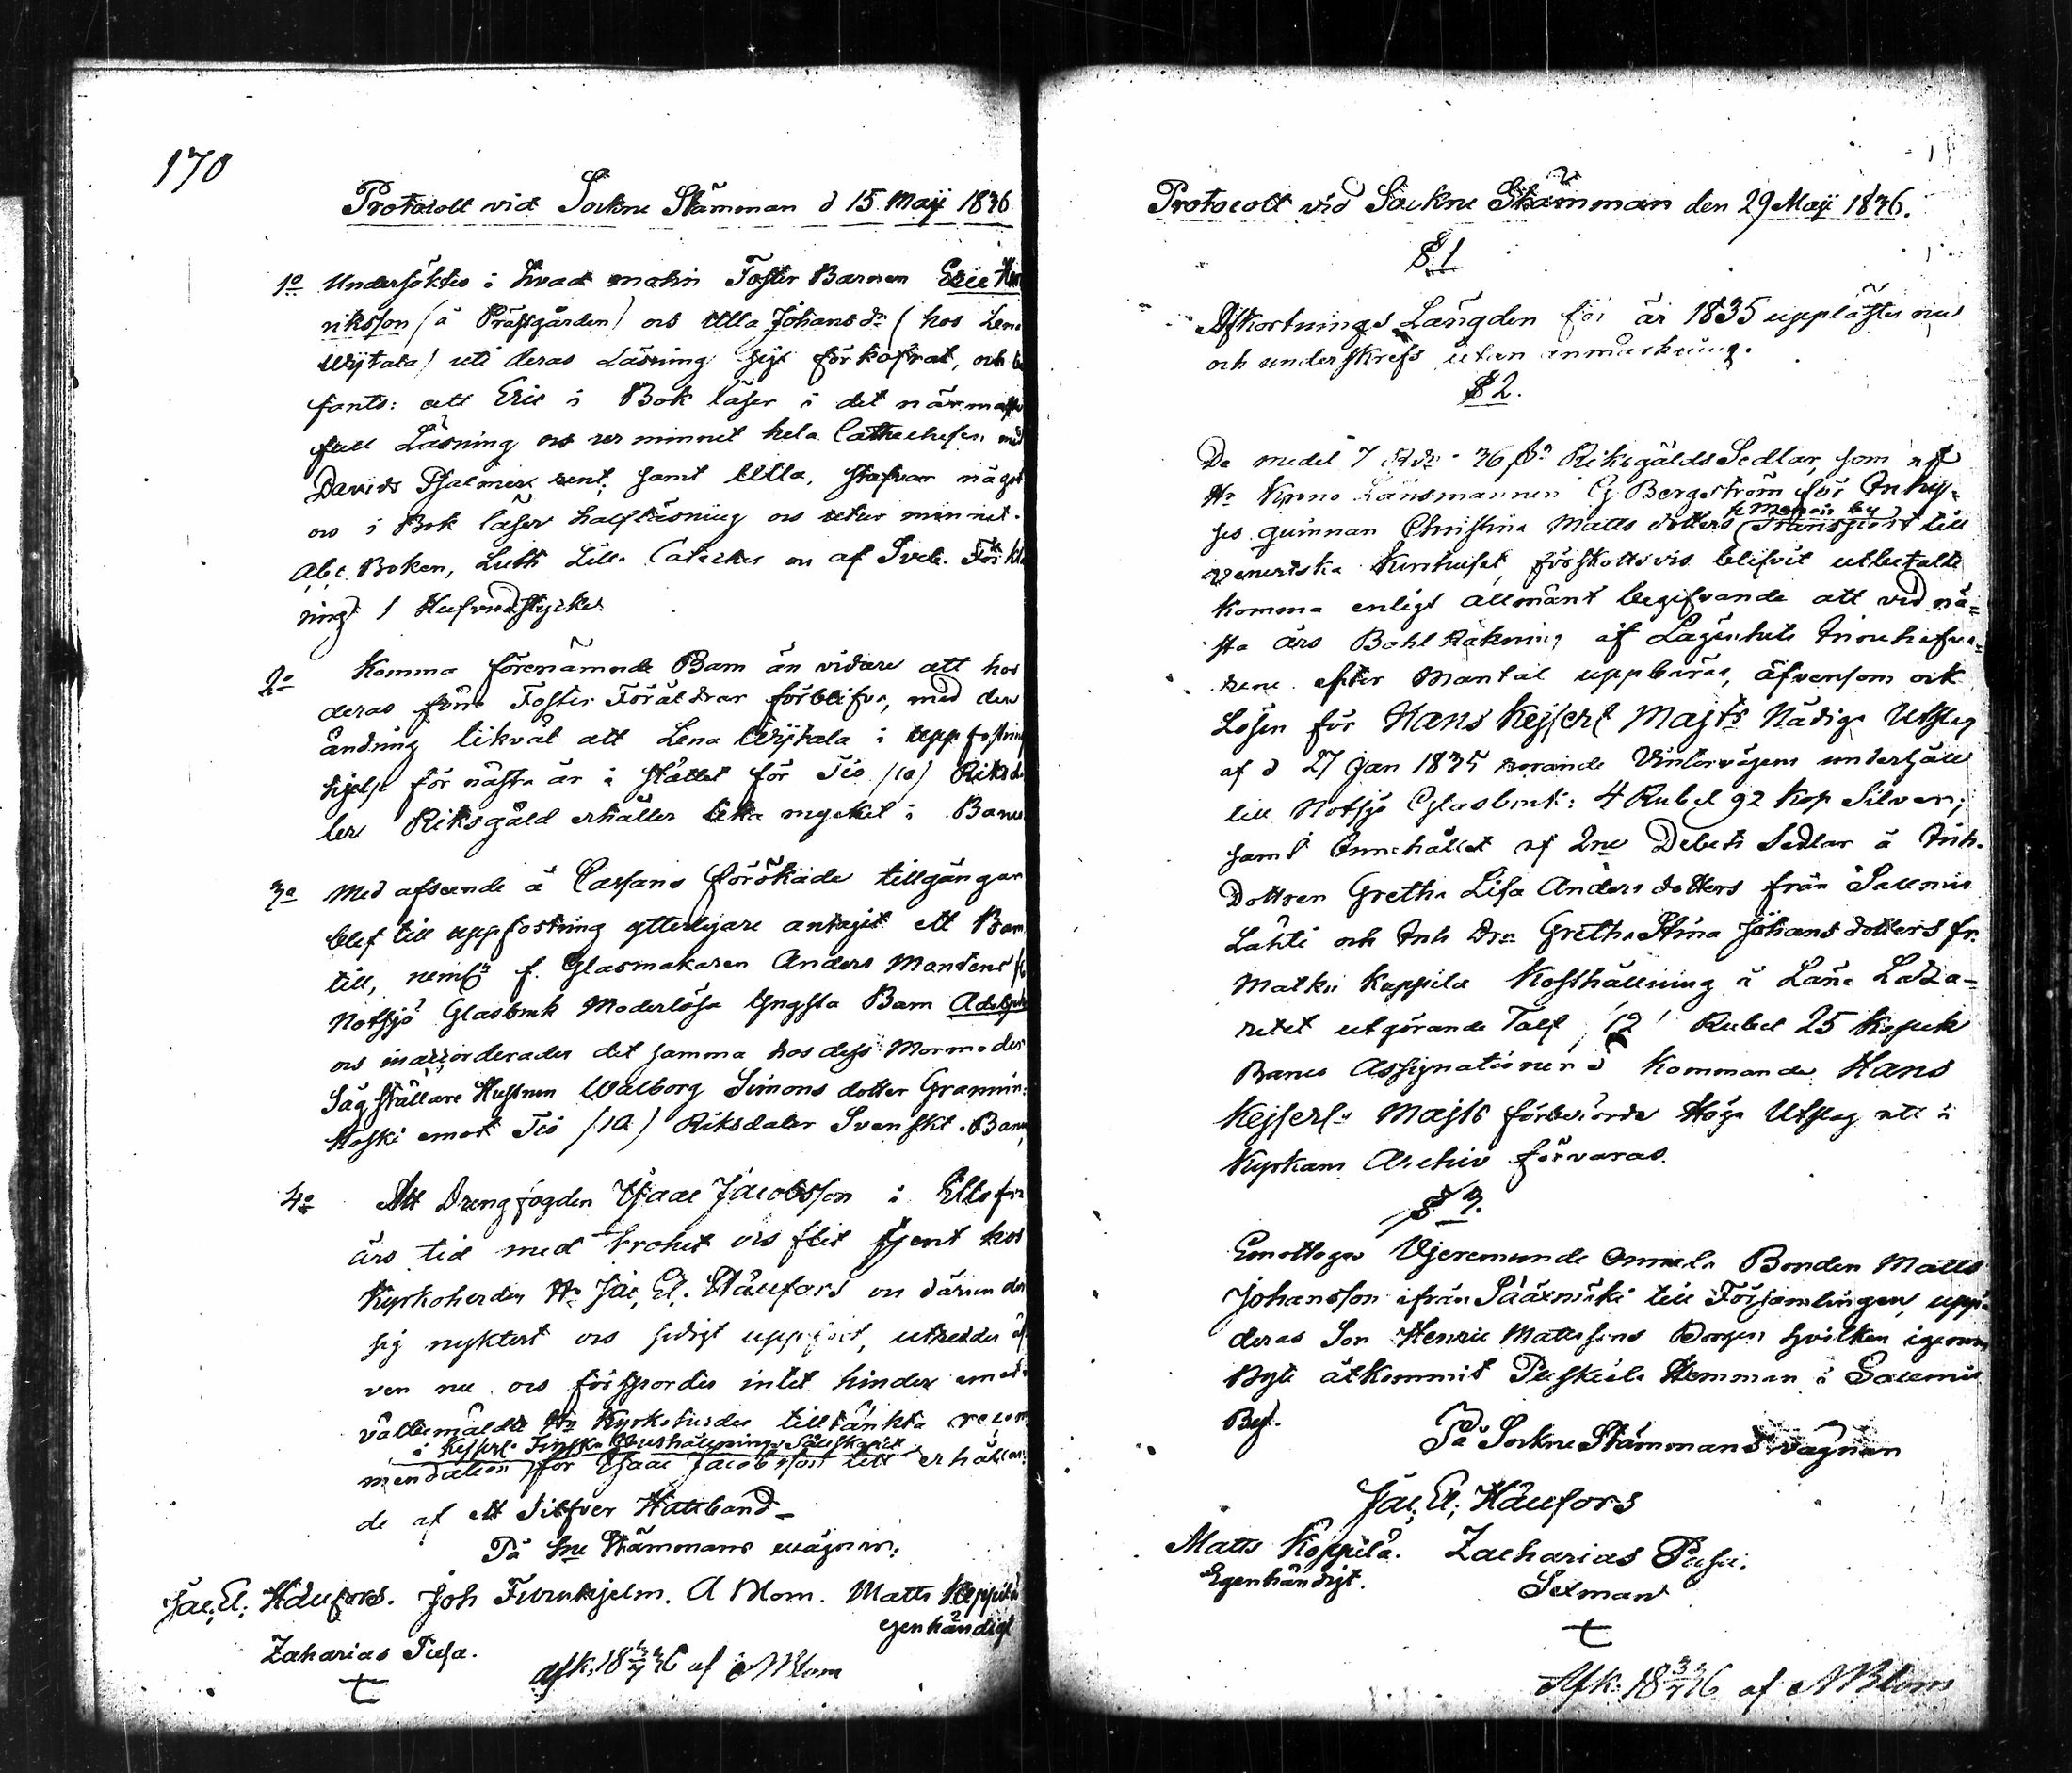 170
Protocolt vid Sockne Stämman d 15 Maji 1836
1o Undersöktes i hvad mohn Foster Barnen Eric Hen
riksson (å Prästgården) och Ulla Johansdr (hos Lena
Wijtala) uti deras Läsning sig förkofrat, och be
fants: att Eric i Bok läser i det närmaste
full Läsning och ur minnet hela Cathechesen med
Davids Psalmer rent; samt Ulla, stafvar något
och i Bok läser halfläsning och utur minnet
Abc Boken, Luth Lilla Cateches och af Sveb. Förkla
ning 1 Hufvudstycket.
2o Komma förenämnde Barn än vidare att hos
deras förre Foster Föräldrar förblifva, med den
ändring likväl att Lena Wijtala i uppfostrings
hjelp för nästa år i stället för Tio (10) Riksda
ler Riksgäld erhåller lika mycket i Banco
3o Med afseende å Cassans förökade tillgångar
blef till uppfostring ytterligare antagit ett Barn
till, neml f. Glasmakaren Anders Mandens fr
Notsjö Glasbruk Moderlösa Yngsta Barn Adolph
och inaccorderades det samma hos dess Mormoder
Sågställare Hustrun Walborg Simons dotter Grannin
koski emot Tio (10) Riksdaler Svenskt Banco
4o Att Drengfogden Isaac Jacobsson i Ellofva
års tid med trohet och flit tjent hos
Kyrkoherden Hr Jac. El. Håufors och därunder
sig nyktert och sedigt uppfört, utreddes äf
ven nu och förspordes intet hinder emot
välbemäldte Hr Kyrkoherdes tilltänkta recom
i Kejserl. Finska Hushållnings Sällskapet
mendation för Isaac Jacobsson till erhållan
de af ett Silfver Hattband
På Sne Stämmans wägnar:
Jac. El. Håufors. Joh Furuhjelm. A Blom. Matts Koppila
egenhändigt
Zaharias Pusa.
Afk. 18 3/7 36 af A Blom
Protocolt vid Sockne Stämman den 29 Maji 1836.
§ 1
Afkortnings Längden för år 1835 upplästes nu
och underskrefs utan anmärkning.
§ 2.
De medel 7 Rdr 36 s Riksgälds Sedlar, som af
Hr Krono Länsmannen C. G. Bergström för Inhyses
qvinnan Christina Matts dotters Transport till
veneriska Kurhuset, förskottsvis blifvit utbetalte
komma enligt allmänt begifvande att vid nä-
sta års Bohl Räkning af Lägenhets Innehafva-
rene efter Mantal uppbäras, äfvensom ock
Lösen för Hans Kejserl Majts Nådiga Utslag
af d 27 Jan 1835 rörande Vintervägens underhåll
till Notsjö Glasbruk: 4 Rubel 92 Kop Silver;
samt Innehållet af 2ne Debets Sedlar å Inh.
Dottren Gretha Lisa Anders dotters från Salmis
Lahti och Inh Drn Gretha Stina Johans dotters fr.
Matku Kuppila Kosthållning å Läne Laza-
rettet utgörande Tolf (12) Rubel 25 Kopek
Banco Assignationer, Kommande Hans
Kejserl. Majts förberörde Höga Utslag att i
Kyrkans Archiv förvaras.
§ 3.
Emottogs Bonden Matts
Johansson ifrån Sääxmäki till Församlingen, uppå
deras Son Henric Mattssons Borgen hvilken igenom
Byte åtkommit Puskiala Hemman i Salmis
By.
På Sockne Stämmans vägnar
Jac. El. Håufors
Matts Koppila. Zacharias Pusa.
Egenhändigt. Sexman
Afk. 18 3/7 36 af A Blom